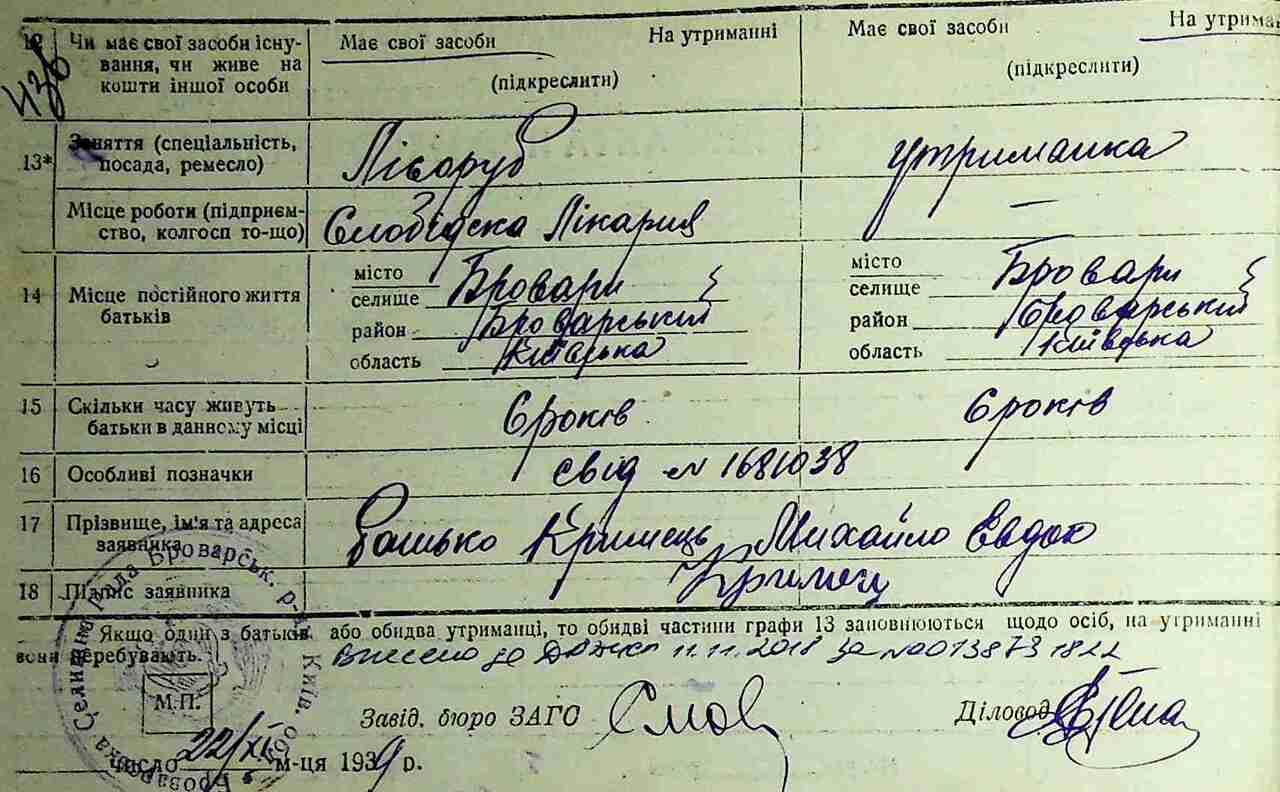 12 Чи має свої засоби існу- Має свої засоби На утриманні Має свої засоби На утрима
вання, чи живе на
кошти іншої особи (підкреслити) (підкреслити)
436
13* Заняття (спеціальність,
посада, ремесло) Лісоруб утриманка
Місце роботи (підприєм-
ство, колгосп то-що) Слобідска Лікарня —
14 Місце постійного життя
батьків
місто
селище Бровари
район Броварський
область Київська
місто
селище Бровари
район Броварський
область Київська
15 Скільки часу живуть
батьки в данному місці 6 років 6 років
16 Особливі позначки свід N 1681038
17 Прізвище, ім'я та адреса
заявника Батько Кримець Михайло Евдок
18 Підпис заявника Кримец
Якщо один з батьків або обидва утриманці, то обидві частини графи 13 заповнюються щодо осіб, на утриманні
вони перебувають. Внесено до ДРАЦС 11.11.2018 за N
М.П.
Завід. бюро ЗАГС
Діловод
Число 22/XI м-ця 1939 р.
Селищна рада Броварськ. р-ну Київ. обл.